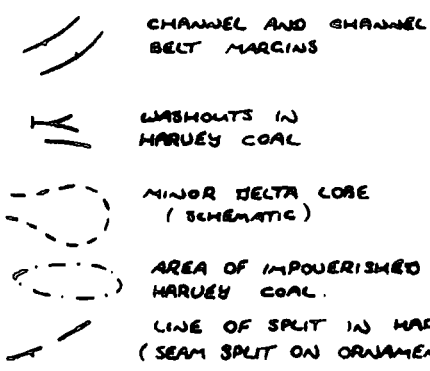 CHANNEL AND CHANNEL
BELT MARGINS
WASHOUTS IN
HARVEY COAL
MINOR DELTA LOBE
( SCHEMATIC )
AREA OF IMPOVERISHED
HARVEY COAL.
LINE OF SPLIT IN HAR
( SEAM SPLIT ON ORNAMEN